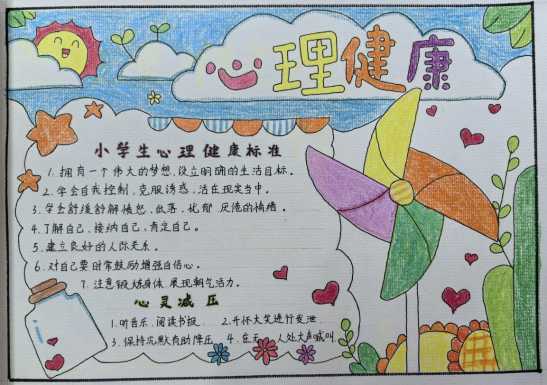 心理健康
小学生心理健康标准
1.拥有一个伟大的梦想,设立明确的生活目标。
2.学会自我控制,克服诱惑,活在现实当中。
3.学会舒缓舒解愤怒、低落、忧郁、厌倦的情绪。
4.了解自己、接纳自己、肯定自己。
5.建立良好的人际关系。
6.对自己要时常鼓励增强自信心。
7.注意锻炼身体展现朝气活力。
心灵减压
1.听音乐、阅读书报、 2.开怀大笑进行发泄
3.保持沉默有助降压 4.在无人处大声喊叫